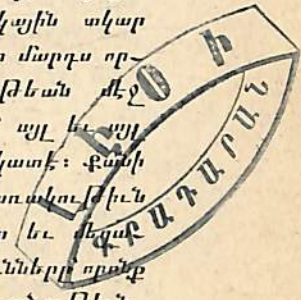 կային տկար
մարդս որ-
թեան մէջ
այլ եւ այլ
կատէ։ Քանի
առակութիւն
եւ մեզայ
ունները որոնք
ԻՕԻ
ԳՐԱԴԱՐԱՆ